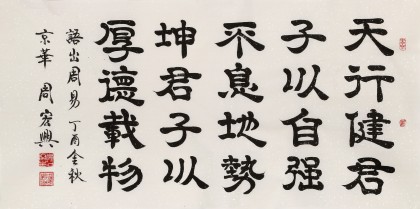 天行健君
子以自强
不息地勢
坤君子以
厚德載物
語出周易 丁酉金秋
京華 周宏興